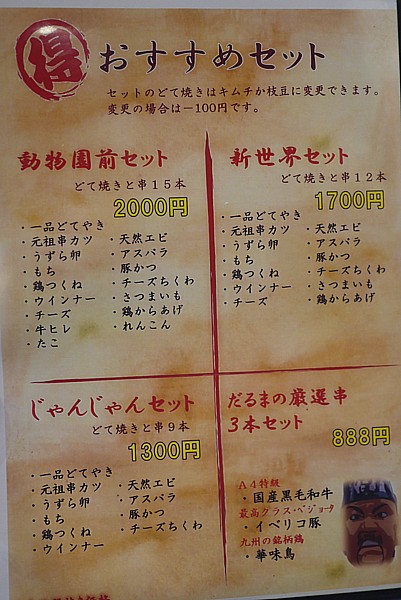 得 おすすめセット
セットのどて焼きはキムチか枝豆に変更できます。
変更の場合は−100円です。
動物園前セット
どて焼きと串15本
2000円
・一品どてやき
・元祖串カツ
・うずら卵
・もち
・鶏つくね
・ウインナー
・チーズ
・牛ヒレ
・たこ
・天然エビ
・アスパラ
・豚かつ
・チーズちくわ
・さつまいも
・鶏からあげ
・れんこん
新世界セット
どて焼きと串12本
1700円
・一品どてやき
・元祖串カツ
・うずら卵
・もち
・鶏つくね
・ウインナー
・チーズ
・天然エビ
・アスパラ
・豚かつ
・チーズちくわ
・さつまいも
・鶏からあげ
じゃんじゃんセット
どて焼きと串9本
1300円
・一品どてやき
・元祖串カツ
・うずら卵
・もち
・鶏つくね
・ウインナー
・天然エビ
・アスパラ
・豚かつ
・チーズちくわ
だるまの厳選串
3本セット
888円
A4特級
・国産黒毛和牛
最高グラス・ベジョータ
・イベリコ豚
九州の銘柄鶏
・華味鳥